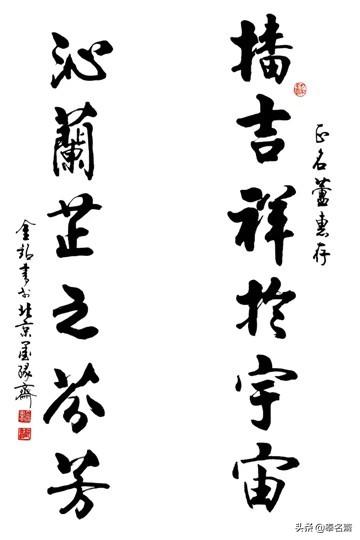 播吉祥於宇宙
正名惠存
沁蘭芷之芬芳
金書於北京墨緣齋
头条@奉名